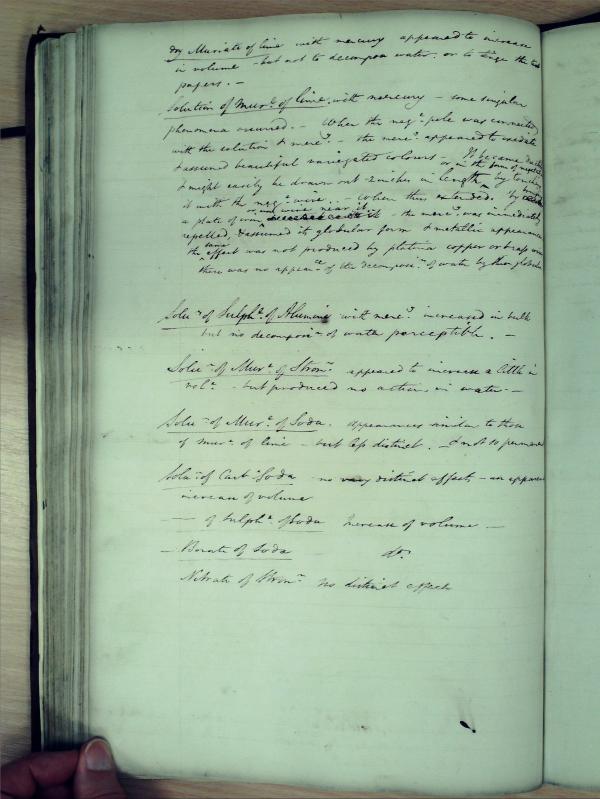 dry Muriate of lime with mercury appeared to increase
in volume - but not to decompose water, or to tinge the
papers. -
Solution of Mur.e of lime. with mercury - some singular
phenomena occurred. - When the neg.e pole was connected
with the solution & merc.y - the merc.y appeared to
& assumed beautiful variegated colours or in the form of
It became
& might easily be drawn out 2 inches in length by touching
it with the neg.e wire. - When thus extended, if
a plate of iron were near it - the merc.y was immediately
repelled, & assumed its globular form & metallic appearance
the same effect was not produced by platina copper or brass
there was no appear.ce of the decomposi.n of water by these globules
Solu.n of Sulph.e of Alumine with merc.y increased in bulk
but no decomposi.n of water perceptible. -
Solu.n of Mur.e of Stron.n appeared to increase a little in
vol.e - but produced no action in water -
Solu.n of Mur.e of Soda. appearances similar to those
of mur.e of lime - but less distinct. - & not so permanent
Solu.n of Carb.e Soda no very distinct effects - an apparent
increase of volume
— of Sulph.e of Soda Increase of volume -
- Borate of Soda do.
Nitrate of Stron.n no distinct effect